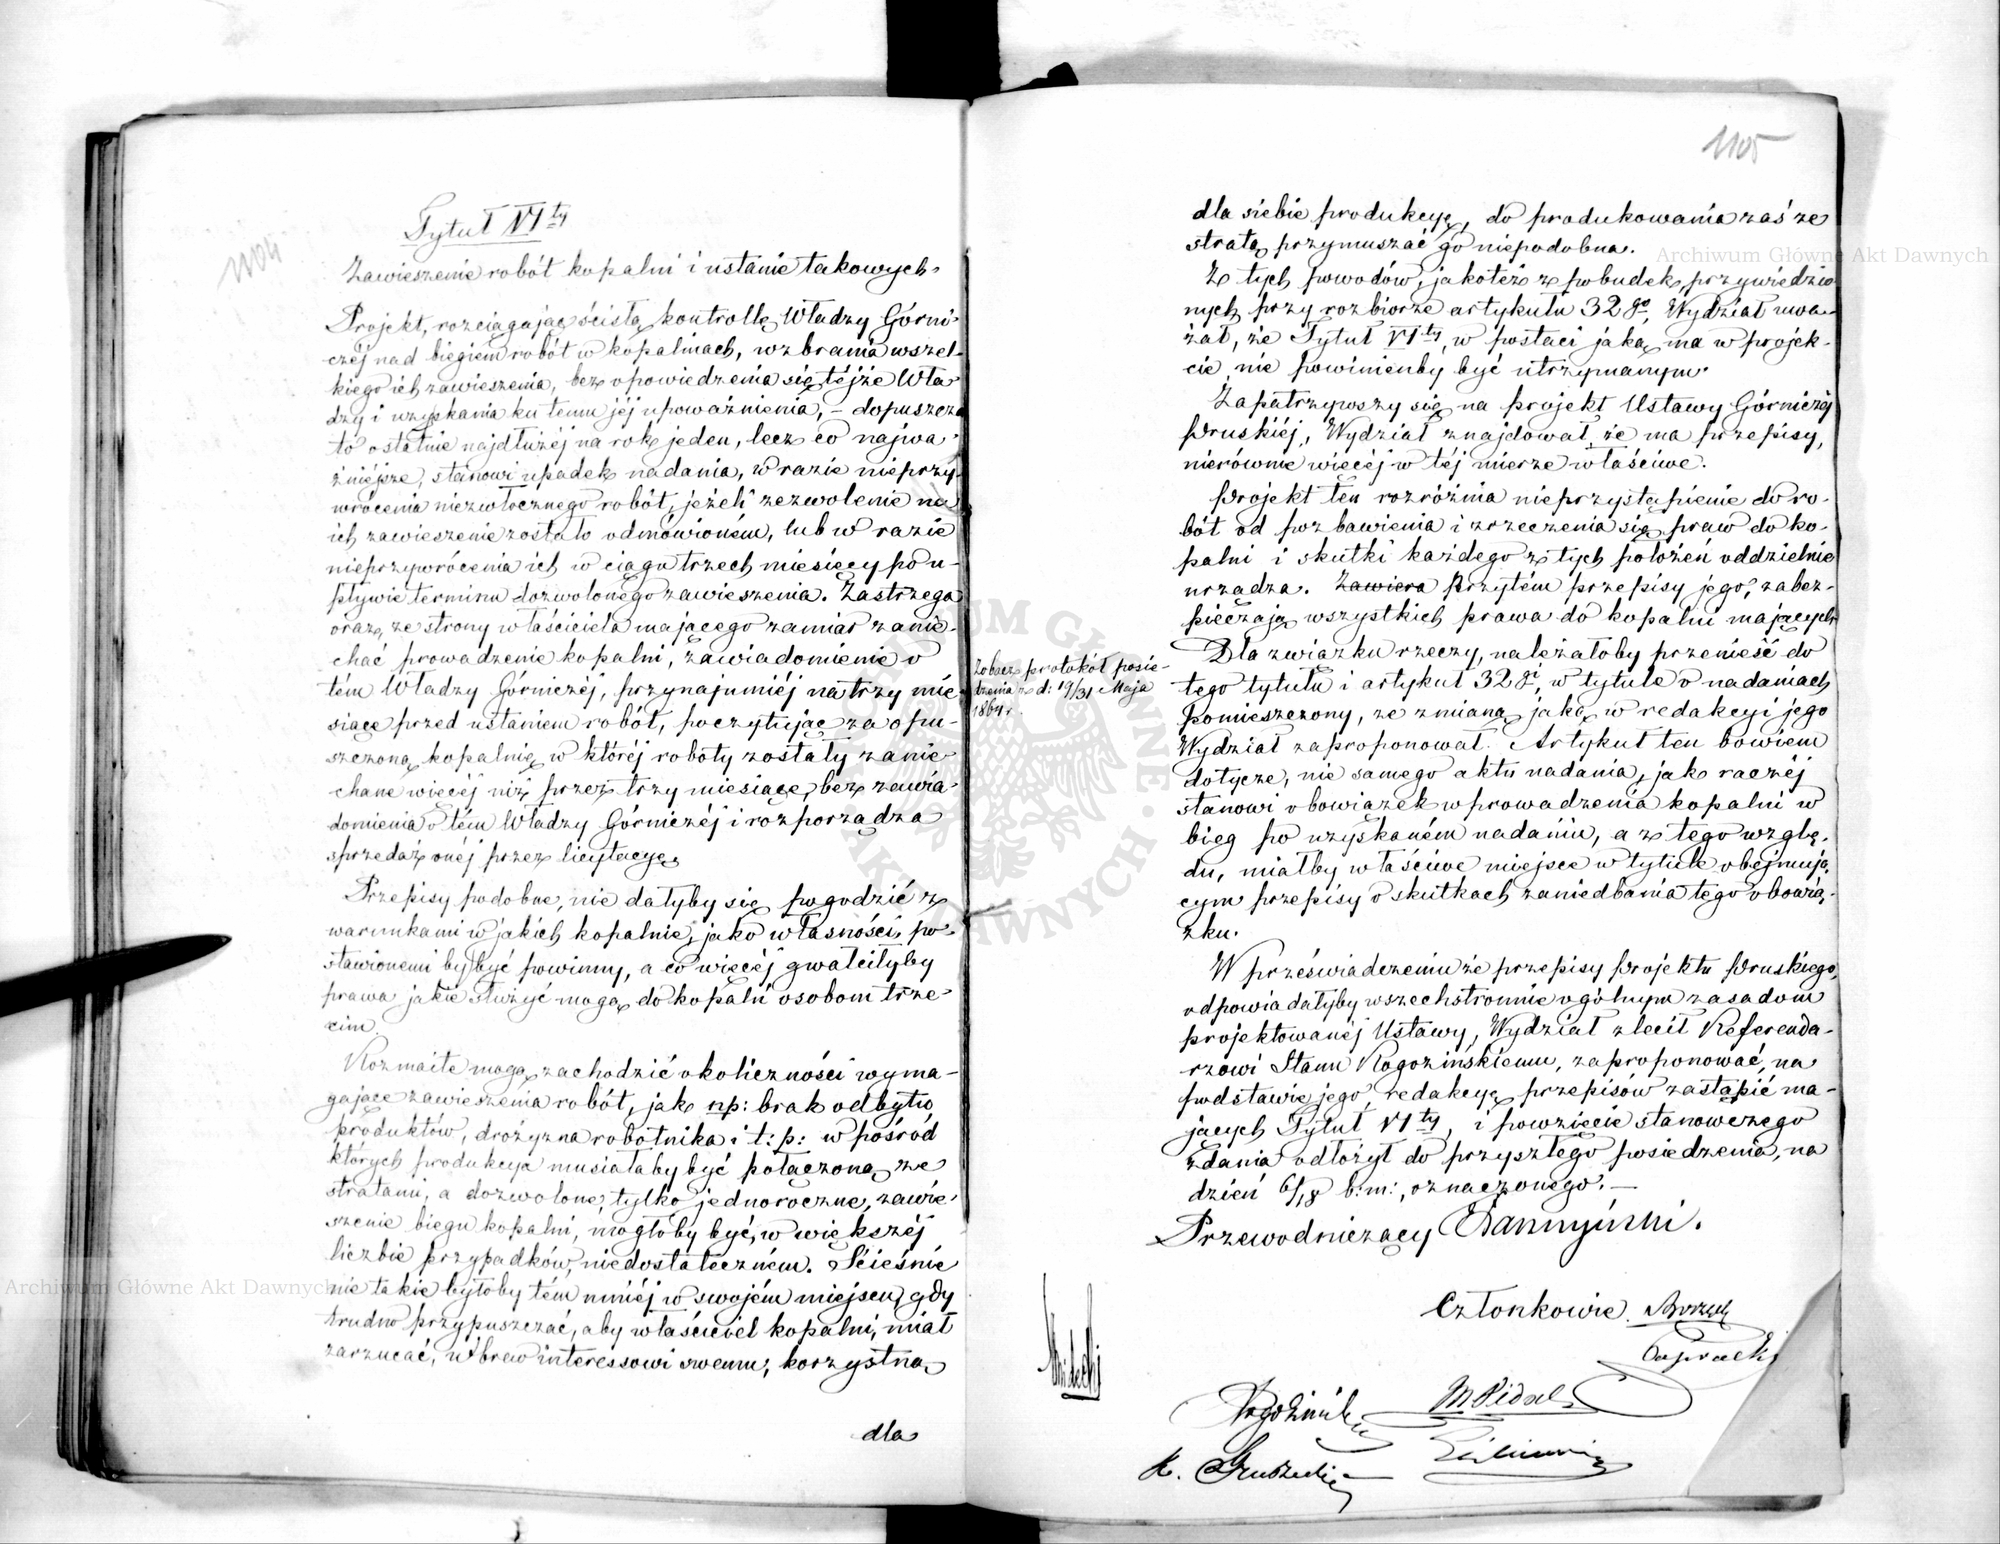 1104
Tytuł VI ty
Zawieszenie robót kopalni i ustanie takowych.
Projekt, rozciągając ścisłą kontrollę Władzy Górni-
czéj nad biegiem robót w kopalniach, wzbrania wszel-
kiego ich zawieszenia, bez opowiedzenia się téjże Wła-
dzy i uzyskania ku temu jéj upoważnienia, – dopuszcza
to ostatnie najdłużéj na rok jeden, lecz co najwa-
żniéjsze, stanowi upadek nadania, w razie nieprzy-
wrócenia niezwłocznego robót, jeżeli zezwolenie na
ich zawieszenie zostało odmówioném, lub w razie
nieprzywrócenia ich w ciągu trzech miesięcy po u-
pływie terminu dozwolonego zawieszenia. Zastrzega
oraz, ze strony właściciela mającego zamiar zanie-
chać prowadzenie kopalni, zawiadomienie o
tém Władzy Górniczéj, przynajmniéj na trzy mie-
siące przed ustaniem robót, poczytując za opu-
szczoną kopalnię w któréj roboty zostały zanie-
chane więcéj niż przez trzy miesiące, bez zawia-
domienia o tém Władzy Górniczéj i rozporządza
sprzedaż onéj przez licytacyę.
Przepisy podobne, nie dałyby się pogodzić z
warunkami w jakich kopalnie, jako własności, po-
stawionemi by być powinny, a co więcéj gwałciłyby
prawa jakie służyć mogą do kopalń osobom trze-
cim.
Rozmaite mogą zachodzić okoliczności wyma-
gające zawieszenia robót, jak np: brak odbytu
produktów, drożyzna robotnika i t: p: w pośród
których produkcya musiałaby być połączoną ze
stratami, a dozwolone, tylko jednoroczne, zawie-
szenie biegu kopalni, mogłoby być, w większéj
liczbie przypadków, niedostateczném. Ścieśnie
nie takie byłoby tém mniéj w swojém miejscu, gdy
trudno przypuszczać, aby właściciel kopalni, miał
zarzucać, wbrew interessowi swemu, korzystną
dla
1105
dla siebie produkcyę, do produkowania zaś ze
stratą przymuszać go niepodobna.
Z tych powodów, jakoteż z pobudek przywiedzio
nych przy rozbiorze artykułu 32 go, Wydział uwa-
żał, że Tytuł VI ty, w postaci jaką ma w projek-
cie, nie powinienby być utrzymanym.
Zapatrzywszy się na projekt Ustawy Górniczéj
Pruskiéj, Wydział znajdował, że ma przepisy,
nierównie więcéj w téj mierze właściwe.
Projekt ten rozróżnia nieprzystąpienie do ro-
bót od pozbawienia i zrzeczenia się praw do ko-
palni i skutki każdego z tych położeń oddzielnie
urządza. Zawiera Przytém przepisy jego, zabez-
pieczają wszystkich prawa do kopalni mających
Dla związku rzeczy, należałoby przenieść do
tego tytułu i artykuł 32 gi, w tytule o nadaniach
pomieszczony, ze zmianą jaką w redakcyi jego
Wydział zaproponował. Artykuł ten bowiem
dotycze, nie samego aktu nadania, jak raczéj
stanowi obowiązek wprowadzenia kopalni w
bieg po uzyskaném nadaniu, a z tego wzglę-
du, miałby właściwe miejsce w tytule obejmują-
cym przepisy o skutkach zaniedbania tego obowią-
zku.
W przeświadczeniu że przepisy Projektu Pruskiego,
odpowiadałyby wszechstronnie ogólnym zasadom
projektowanéj Ustawy, Wydział zlecił Referenda-
rzowi Stanu Rogozińskiemu, zaproponować, na
podstawie jego, redakcyę przepisów zastąpić ma-
jących Tytuł VI ty, i powzięcie stanowczego
zdania odłożył do przyszłego posiedzenia, na
dzień 6/18 b: m:, oznaczonego. –
Zobacz protokół posie-
dzenia z d: 19/31 Maja
1864 r.
Przewodniczący
Członkowie